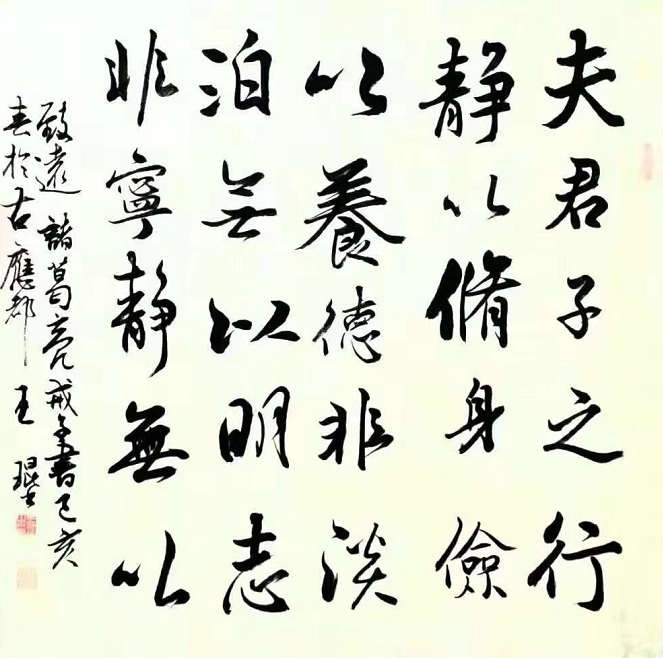 夫君子之行
静以脩身儉
以養德非淡
泊无以明志
非寧静無以
致遠 諸葛亮戒子書己亥
春於古應都 王琨